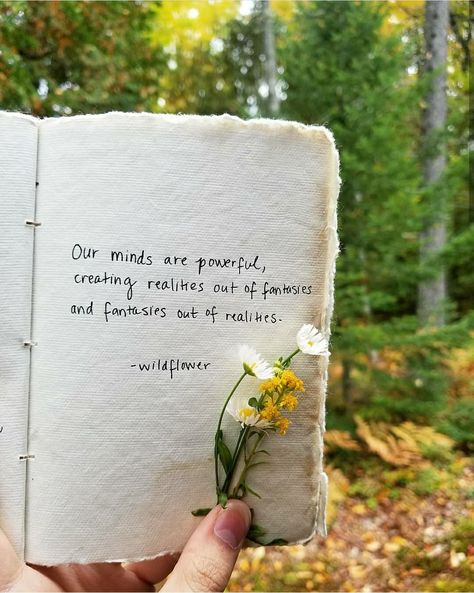 Our minds are powerful,
creating realities out of fantasies
and fantasies out of realities.
-wildflower